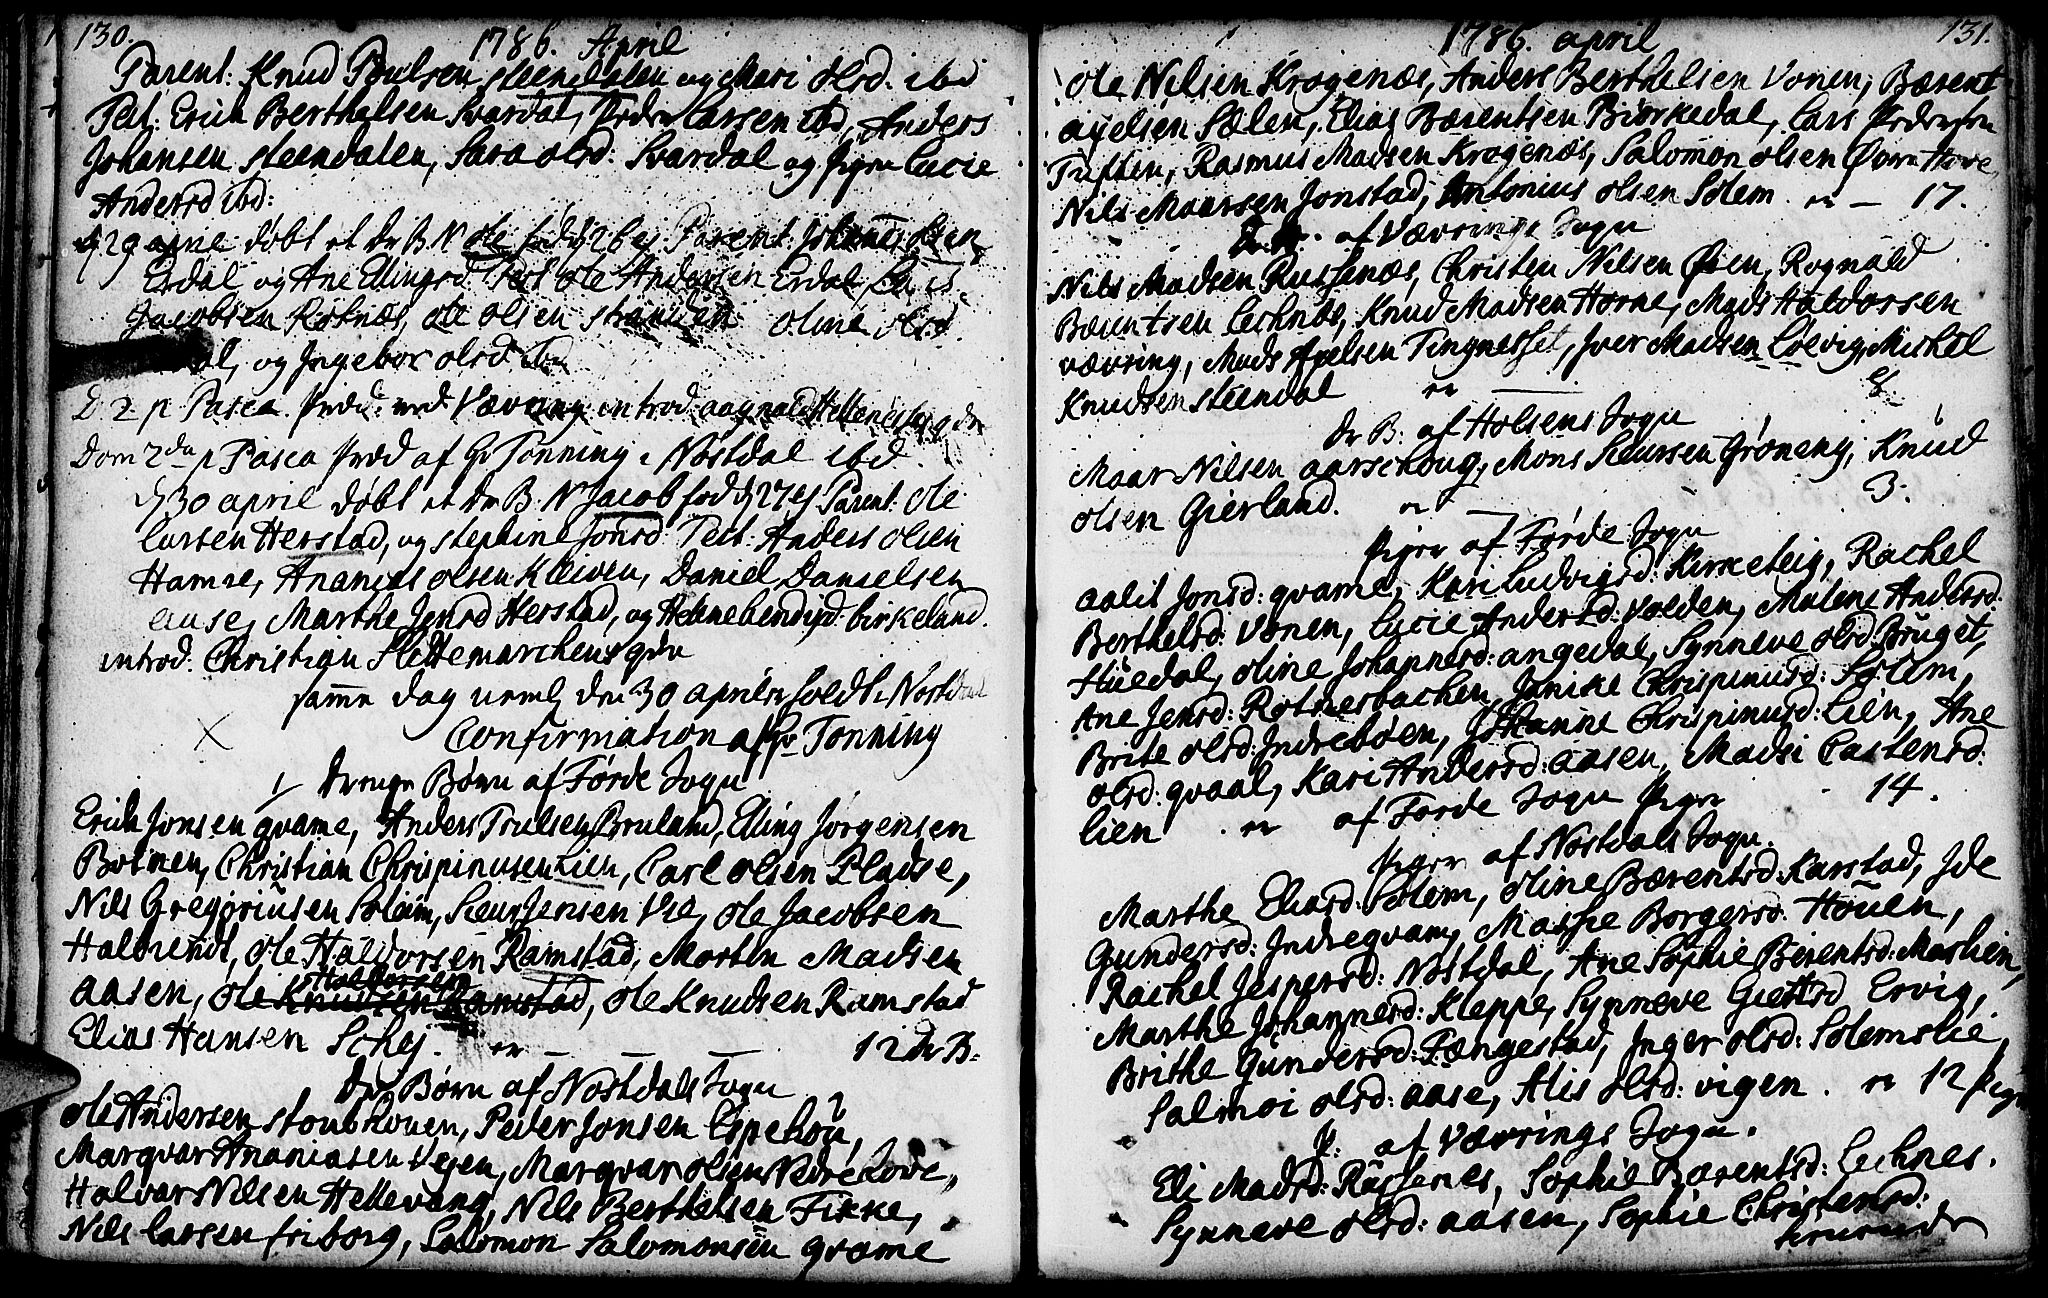 130.
1786. April
Parent: Knud Poulsen steendalen og Mari olsd. ibd
Test: Erich Berthelsen Svardal, Peder Larsen ibd, Anders
Johansen steendalen, Sara olsd: Svardal og pigen Lucie
Andersd ibd:
d 29 april døbt et dr B N ole fød d 26 ej Parent: Johanes olsen
Erdal og Ane Ellingsd Test ole Andersen Erdal,
Jacobsen Røknæs, ole olsen stranden oline olsd
og Ingebor olsd ibd
D 2 p Pasca Præd: ved Vævring introd
Dom 2da p Pasca Præd af Hr Tonning i Nøstdal ibd.
d 30 april døbt et dr B. N Jacob fød d 27 ej Parent: ole
Larsen Herstad, og stephine Jonsd Test: Anders olsen
Hamre, Ananias olsen Kleiven, Daniel Danielsen
Marthe Jensd Herstad, og birkeland.
introd: Christian
samme dag neml den 30 april er holdt i Nøstdal
Confirmation af Hr Tonning
Drenge Børn af Førde Sogn
Erich Jonsen qvame, Anders Trulsen Bruland, Elling Jørgensen
Botnen, Christian Chrispinusen Lien, Carl olsen Pladse,
Nils Gregoriusen Solem, Siur Jensen Vie, ole Jacobsen
Halbrendt, ole Haldorsen Ramstad, Morten Madsen
aasen, ole Haldorsen Knudsen Ramstad, ole Knudsen Ramstad
Elias Hansen Schej. er — — — 12 dr B.
Dr Børn af Nøstdals Sogn
ole Andersen stoubhouen, Peder Jonsen Espehou,
Marqvar Ananiasen Vejen, Marqvar olsen Nedre Hove,
Halvar Nilsen Hellevang, Nils Berthelsen Fikke,
Nils Larsen friborg, Salomon Salomonsen qvame
131.
1786. april
ole Nilsen Krogenæs, Anders Berthelsen Vonen, Bærent
axelsen Sælen, Elias Bærentsen Biørkedal, Lars Pedersen
Tuften, Rasmus Madsen Krogenæs, Salomon olsen Øvre Hove,
Nils Maursen Jonstad, Antonius olsen Solem. er — 17.
Dr B. af Vævrings Sogn
Nils Madsen Russenæs, Christen Nilsen Øren, Rognald
Bærentsen Lechnæs, Knud Madsen Horne, Mads Haldorsen
vævring, Mads Axelsen Tingnesset, Iver Madsen Løevig, Michel
Knudsen steendal er — 8
Dr B. af Holsens Sogn
Maar Nilsen aarschoug, Mons Siursen Grøneng, Knud
olsen Gierland. er — 3.
Piger af Førde Sogn
aalis Jonsd: qvame, Kari Ludvigsd: Kirketeig, Rachel
Berthelsd: Vonen, Lucie Andersd: Volden, Malene Andersd:
Huedal, oline Johannesd: angedal, Synneve olsd: Bruget,
Ane Jensd: Rotnesbachen, Janike Chrispinusd: Solem,
Brite olsd: Indrebøen, Johanne Chrispinusd: Lien, Ane
olsd: qvaal, Kari Andersd: aasen, Madsi Castensd:
lien er af Førde Sogn Piger 14.
Piger af Nøstdals Sogn.
Marthe Eliasd: Solem, oline Bærentsd: Karstad, Ide
Gundersd: Indreqvam, Massie Borgersd: Houen,
Rachel Jespersd: Nøstdal, Ane Sophie Berentsd:
Marthe Johannesd: Kleppe, Synneve Giertsd Ervig,
Brithe Gundersd: Fængestad, Inger olsd: Solemslie,
Salmoi olsd: aase, Alis olsd: vigen. er 12 Pig
P: af Vævrings Sogn.
Eli Madsd: Russenes, Sophie Bærentsd: Lechnes.
Synneve olsd: aasen, Sophie Christensd: